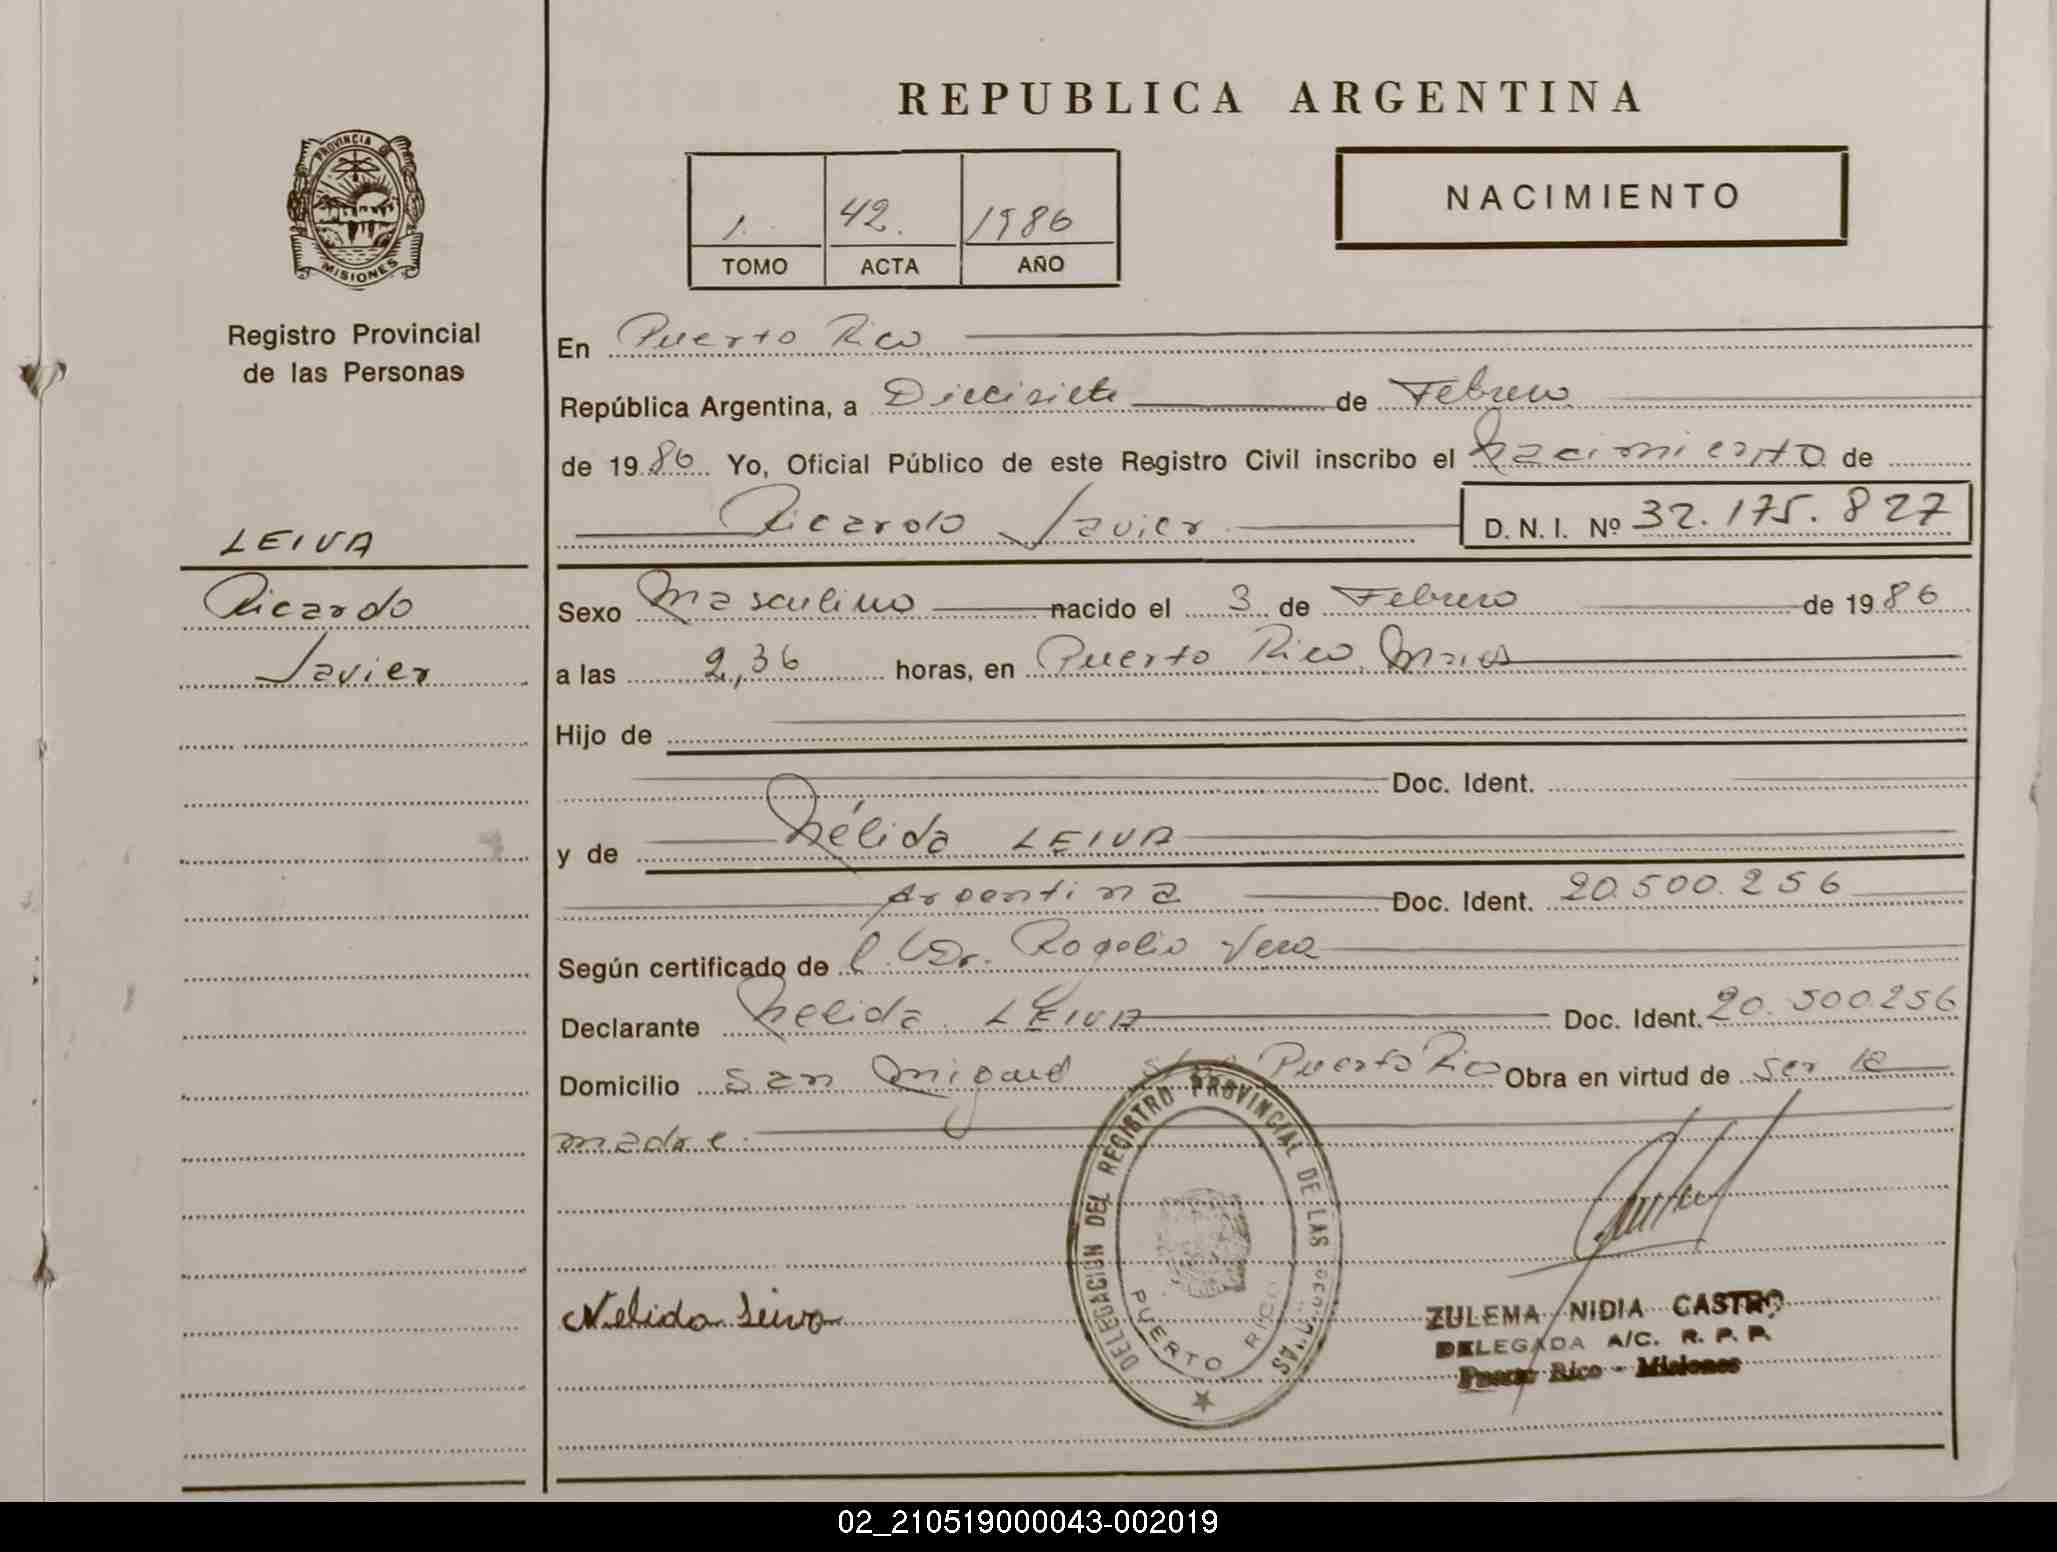 REPUBLICA ARGENTINA
PROVINCIA DE
MISIONES
Registro Provincial
de las Personas
1. 42. 1986
TOMO ACTA AÑO
NACIMIENTO
LEIVA
Ricardo
Javier
En Puerto Rico
República Argentina, a Diecisiete de Febrero
de 1986 Yo, Oficial Público de este Registro Civil inscribo el Nacimiento de
Ricardo Javier D. N. I. Nº 32.175.827
Sexo Masculino nacido el 3 de Febrero de 1986
a las 2,36 horas, en Puerto Rico
Hijo de
Doc. Ident.
y de Nélida LEIVA
Argentina Doc. Ident. 20.500.256
Según certificado de Dr. Rogelio Vera
Declarante Nelida LEIVA Doc. Ident. 20.500256
Domicilio San Miguel Puerto Rico Obra en virtud de ser la
madre.
DELEGACION DEL REGISTRO PROVINCIAL DE LAS
PUERTO RICO
Nelida Leiva
ZULEMA NIDIA CASTRO
DELEGADA A/C. R. P. P.
Puerto Rico - Misiones
02_210519000043-002019